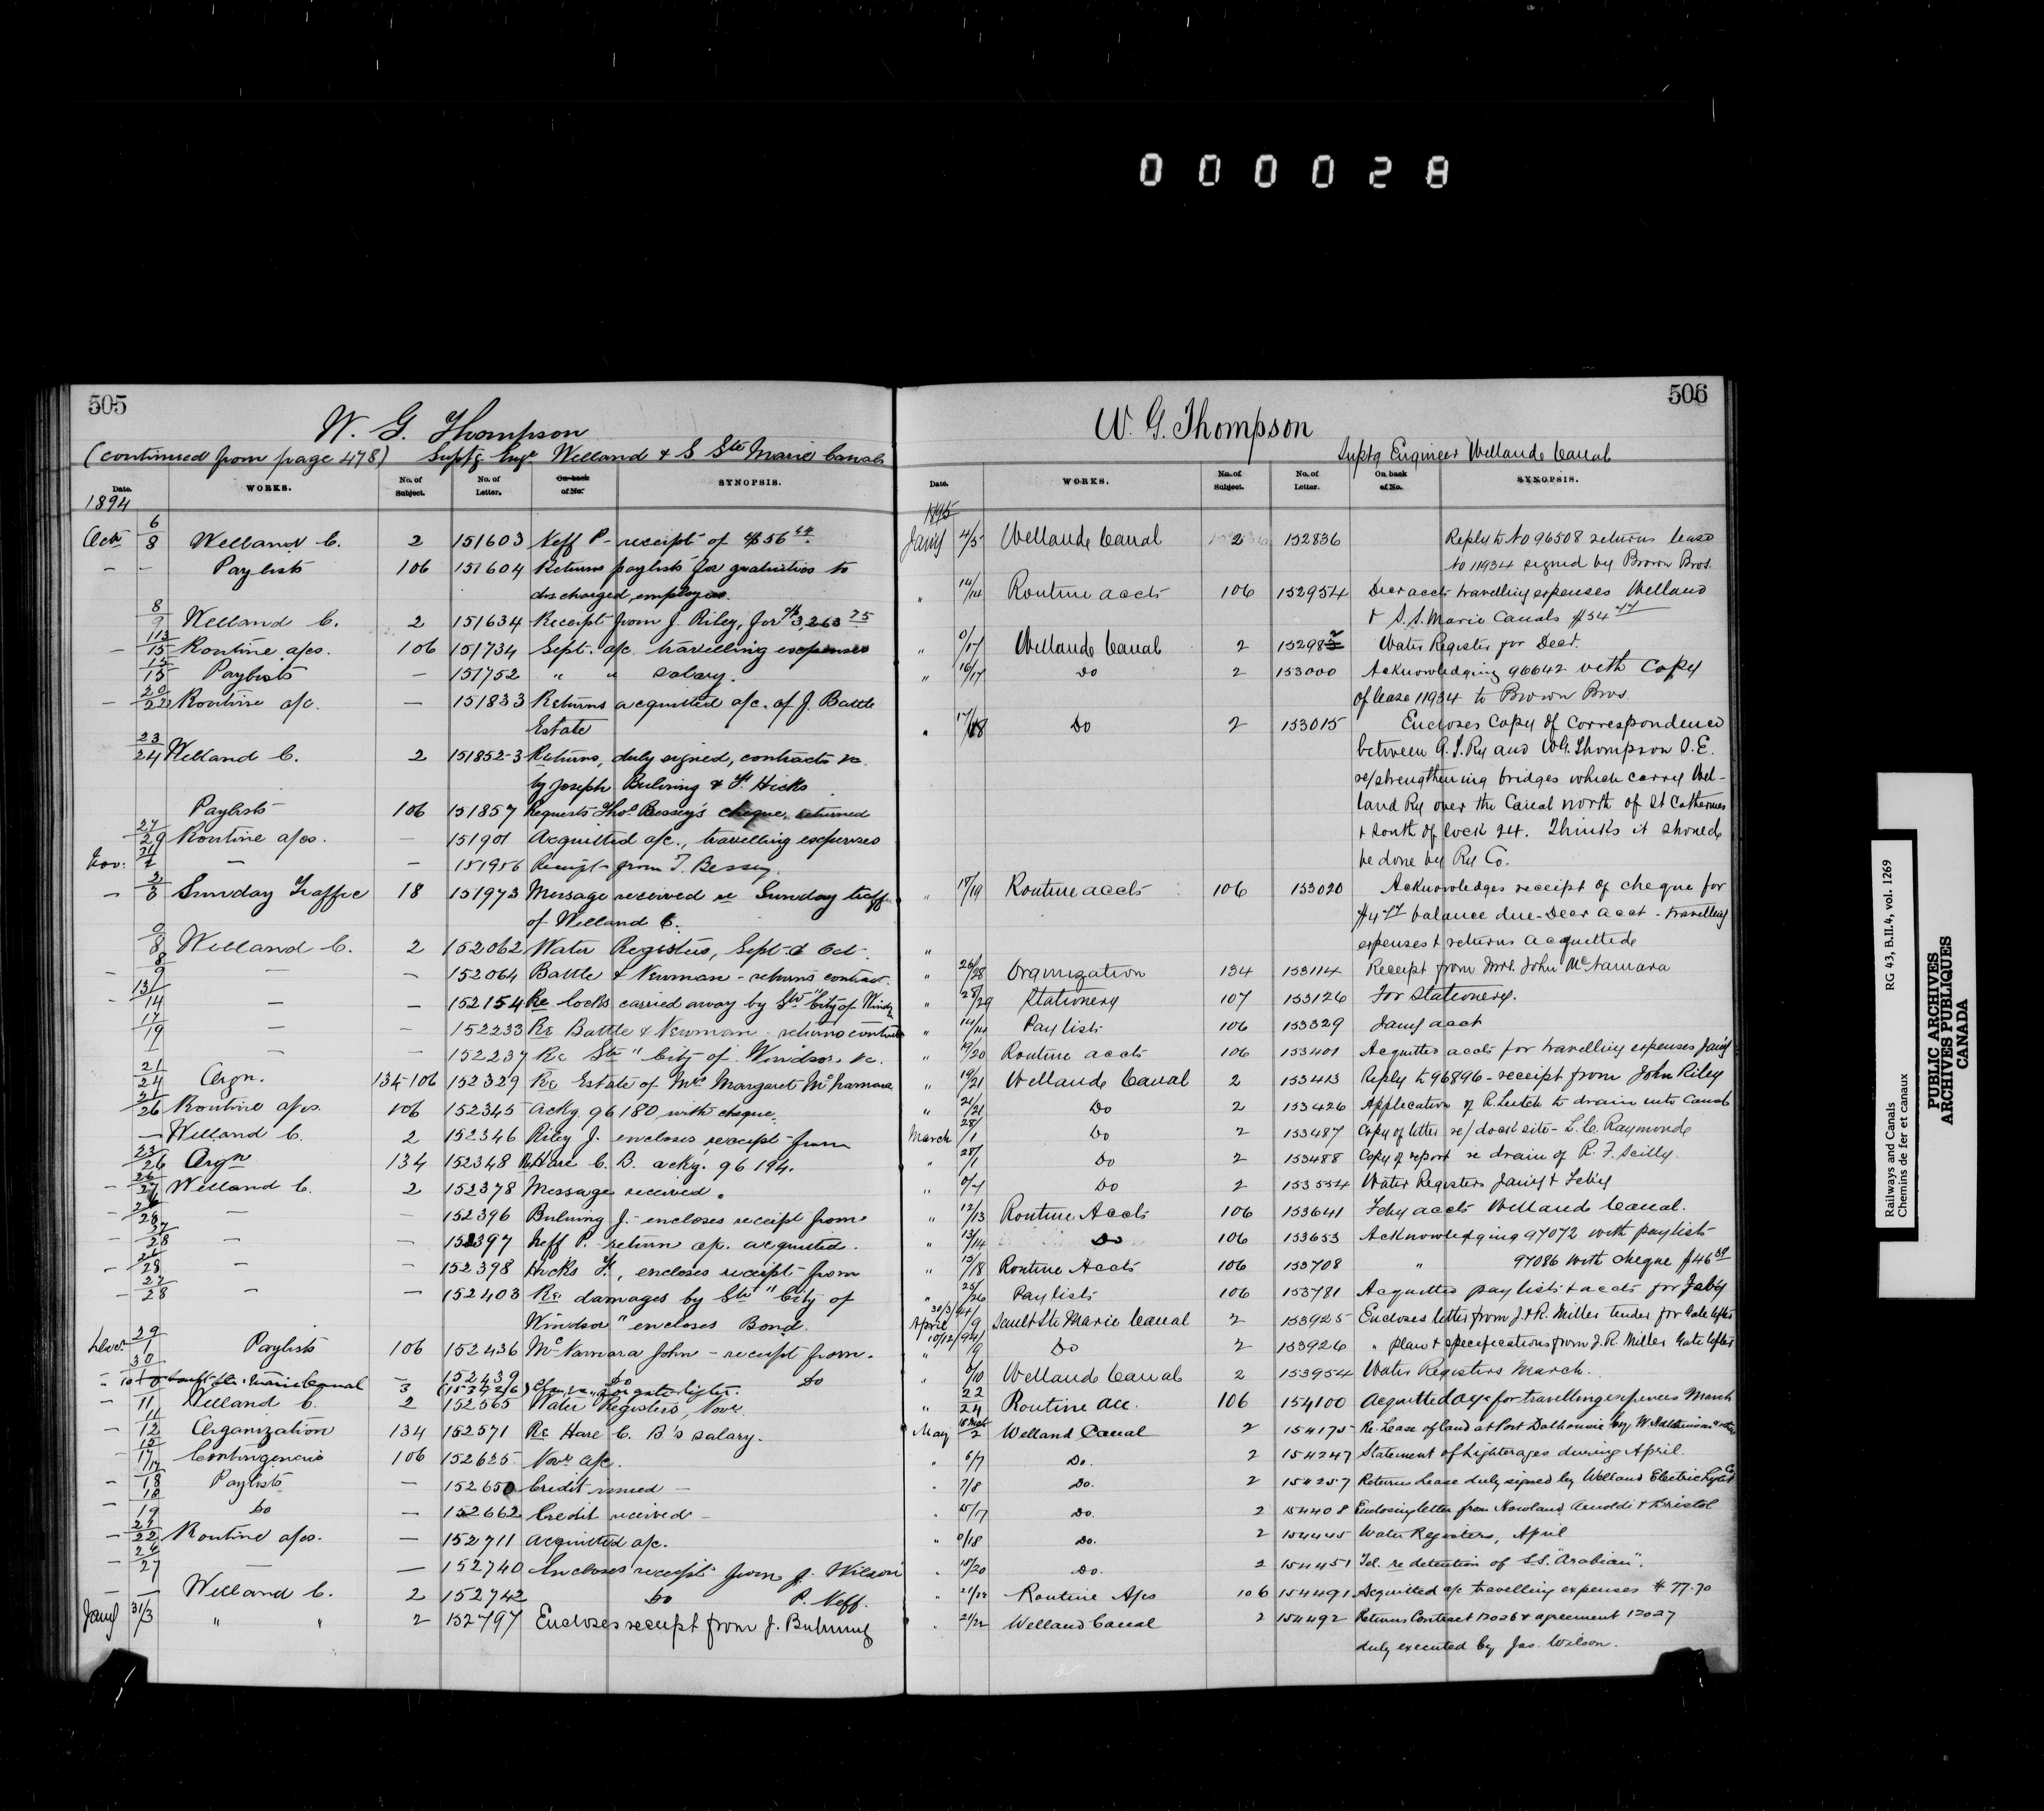 000028
505
W. G. Thompson
(continued from page 478) Suptg Engr Welland & S Ste Marie Canals
Date. WORKS. No. of Subject. No. of Letter. On back of No. SYNOPSIS.
1894
Octr 6/8 Welland C. 2 151603 Neff P. - receipt of $56
— — Paylists 106 151604 Returns paylists for gratuities to
discharged employees.
8/9 Welland C. 2 151634 Receipt from J. Riley, for $3,263 25
— 113/15 Routine a/cs. 106 151734 Sept. a/c travelling expenses
15/15 Paylists — 151752 " " salary.
— 20/22 Routine a/c. — 151833 Returns acquitted a/c. of J. Battle
Estate
23/24 Welland C. 2 151852-3 Returns, duly signed, contracts &c.
by Joseph Buhring & F. Hicks
Paylists 106 151857 Requests Thos Bessey's cheque, returned
27/29 Routine a/cs. — 151901 Acquitted a/c., travelling expenses
Nov. 31/2 — — 151956 Receipt from T. Bessey.
— 2/3 Sunday Traffic 18 151973 Message received re Sunday traffic
of Welland C.
0/8 Welland C. 2 152062 Water Registers, Sept. & Oct.
— 8/9 — — 152064 Battle & Newman - returns contract.
— 13/14 — — 152154 Re locks carried away by Str "City of Windsor
17/19 — — 152233 Re Battle & Newman - returns contract
— — — 152237 Re Str "City of Windsor &c.
21/24 Orgn. 134-106 152329 Re Estate of Mrs Margaret McNamara
21/26 Routine a/cs. 106 152345 Ackg. 96180 with cheque.
— Welland C. 2 152346 Riley J. encloses receipt from
23/26 Orgn 134 152348 Re Hare C. B. ackg. 96194.
— 26/27 Welland C. 2 152378 Message received.
— 28 — — 152396 Buhring J. - encloses receipt from
— 27/28 — — 152397 Neff P. return a/c. acquitted.
— 28 — — 152398 Hicks F., encloses receipt from
— 27/28 — — 152403 Re damages by Str "City of
Windsor" encloses Bond.
Decr. 29/1 Paylists 106 152436 McNamara John - receipt from.
30 — 152439 Do Do
3 gate lifter.
— 11 Welland C. 2 152565 Water Registers, Novr.
— 11/12 Organization 134 152571 Re Hare C. B's salary.
— 15/17 Contingencies 106 152625 Novr a/c.
— 17/18 Paylists — 152650 Credit issued —
— 18/19 Do — 152662 Credit received —
— 21/22 Routine a/cs. — 152711 Acquitted a/c.
— 26/27 — — 152740 Encloses receipt from J. Wilson
— — Welland C. 2 152742 Do P. Neff.
Jany 31/3 " " 2 152797 Encloses receipt from J. Buhring
506
W. G. Thompson
Suptg Engineer Welland Canal
Date. WORKS. No. of Subject. No. of Letter. On back of No. SYNOPSIS.
1895
Jany 4/5 Welland Canal 2 152836 Reply to No 96508 returns lease
No 11934 signed by Brown Bros.
" 14/14 Routine accts 106 152954 Decr accts travelling expenses Welland
& S. S. Marie Canals $54 77
" 0/17 Welland Canal 2 15298 Water Register for Decr.
" 16/17 Do 2 153000 Acknowledging 96642 with copy
of lease 11934 to Brown Bros.
" 17/18 Do 2 153015 Encloses copy of correspondence
between G. T. Ry and W G. Thompson D. E.
re/strengthening bridges which carry Wel-
land Ry over the Canal north of St Catherines
& South of lock 24. Thinks it should
be done by Ry Co.
" 17/19 Routine accts 106 153020 Acknowledges receipt of cheque for
$4 77 balance due - Decr acct - travelling
expenses & returns acquitted
" 26/28 Organization 134 153114 Receipt from Mrs. John McNamara
" 28/29 Stationery 107 153126 For Stationery.
" 14/14 Pay lists 106 153329 Jany acct
" 19/20 Routine accts 106 153401 Acquitted accts for travelling expenses Jany
" 19/21 Welland Canal 2 153413 Reply to 96896 - receipt from John Riley
" 21/21 Do 2 153426 Application of R. Leitch to drain into Canal
March 28/1 Do 2 153487 Copy of letter re/dock site - L. C. Raymond
" 28/1 Do 2 153488 Copy of report re drain of R. F. Scilly.
" 0/7 Do 2 153554 Water Registers Jany & Feby
" 12/13 Routine Accts 106 153641 Feby accts Welland Canal.
" 13/14 Do 106 153653 Acknowledging 97072 with paylists
" 15/18 Routine Accts 106 153708 " 97086 with cheque $46
" 25/26 Pay lists 106 153781 Acquitted paylists & accts for Feby
April 30/3/94/9 Sault Ste Marie Canal 2 153925 Encloses letter from J. & R. Miller tender for Gate lifter
" 10/12/94/9 Do 2 153926 " plan & specifications from J. R. Miller Gate lifter
" 0/10 Welland Canal 2 153954 Water Registers March.
" 22/24 Routine acc. 106 154100 Acquitted a/c for travelling expenses March
May 2 Welland Canal 2 154175 Re. Lease of land at Port Dalhousie by W. Hutchinson & others
" 6/7 Do. 2 154247 Statement of Lighterages during April.
" 7/8 Do. 2 154257 Returns Lease duly signed by Welland Electric Light Co
" 15/17 Do. 2 154408 Enclosing letter from Howland, Arnoldi & Bristol
" 0/18 Do. 2 154445 Water Registers, April
" 18/20 Do. 2 154451 Tel. re detention of S.S. "Arabian".
" 21/22 Routine A/cs 106 154491 Acquitted a/c travelling expenses $77.70
" 21/22 Welland Canal 2 154492 Returns Contract 12026 & agreement 12027
duly executed by Jas. Wilson.
Railways and Canals RG 43, B.II.4, vol. 1269
Chemins de fer et canaux
PUBLIC ARCHIVES
ARCHIVES PUBLIQUES
CANADA